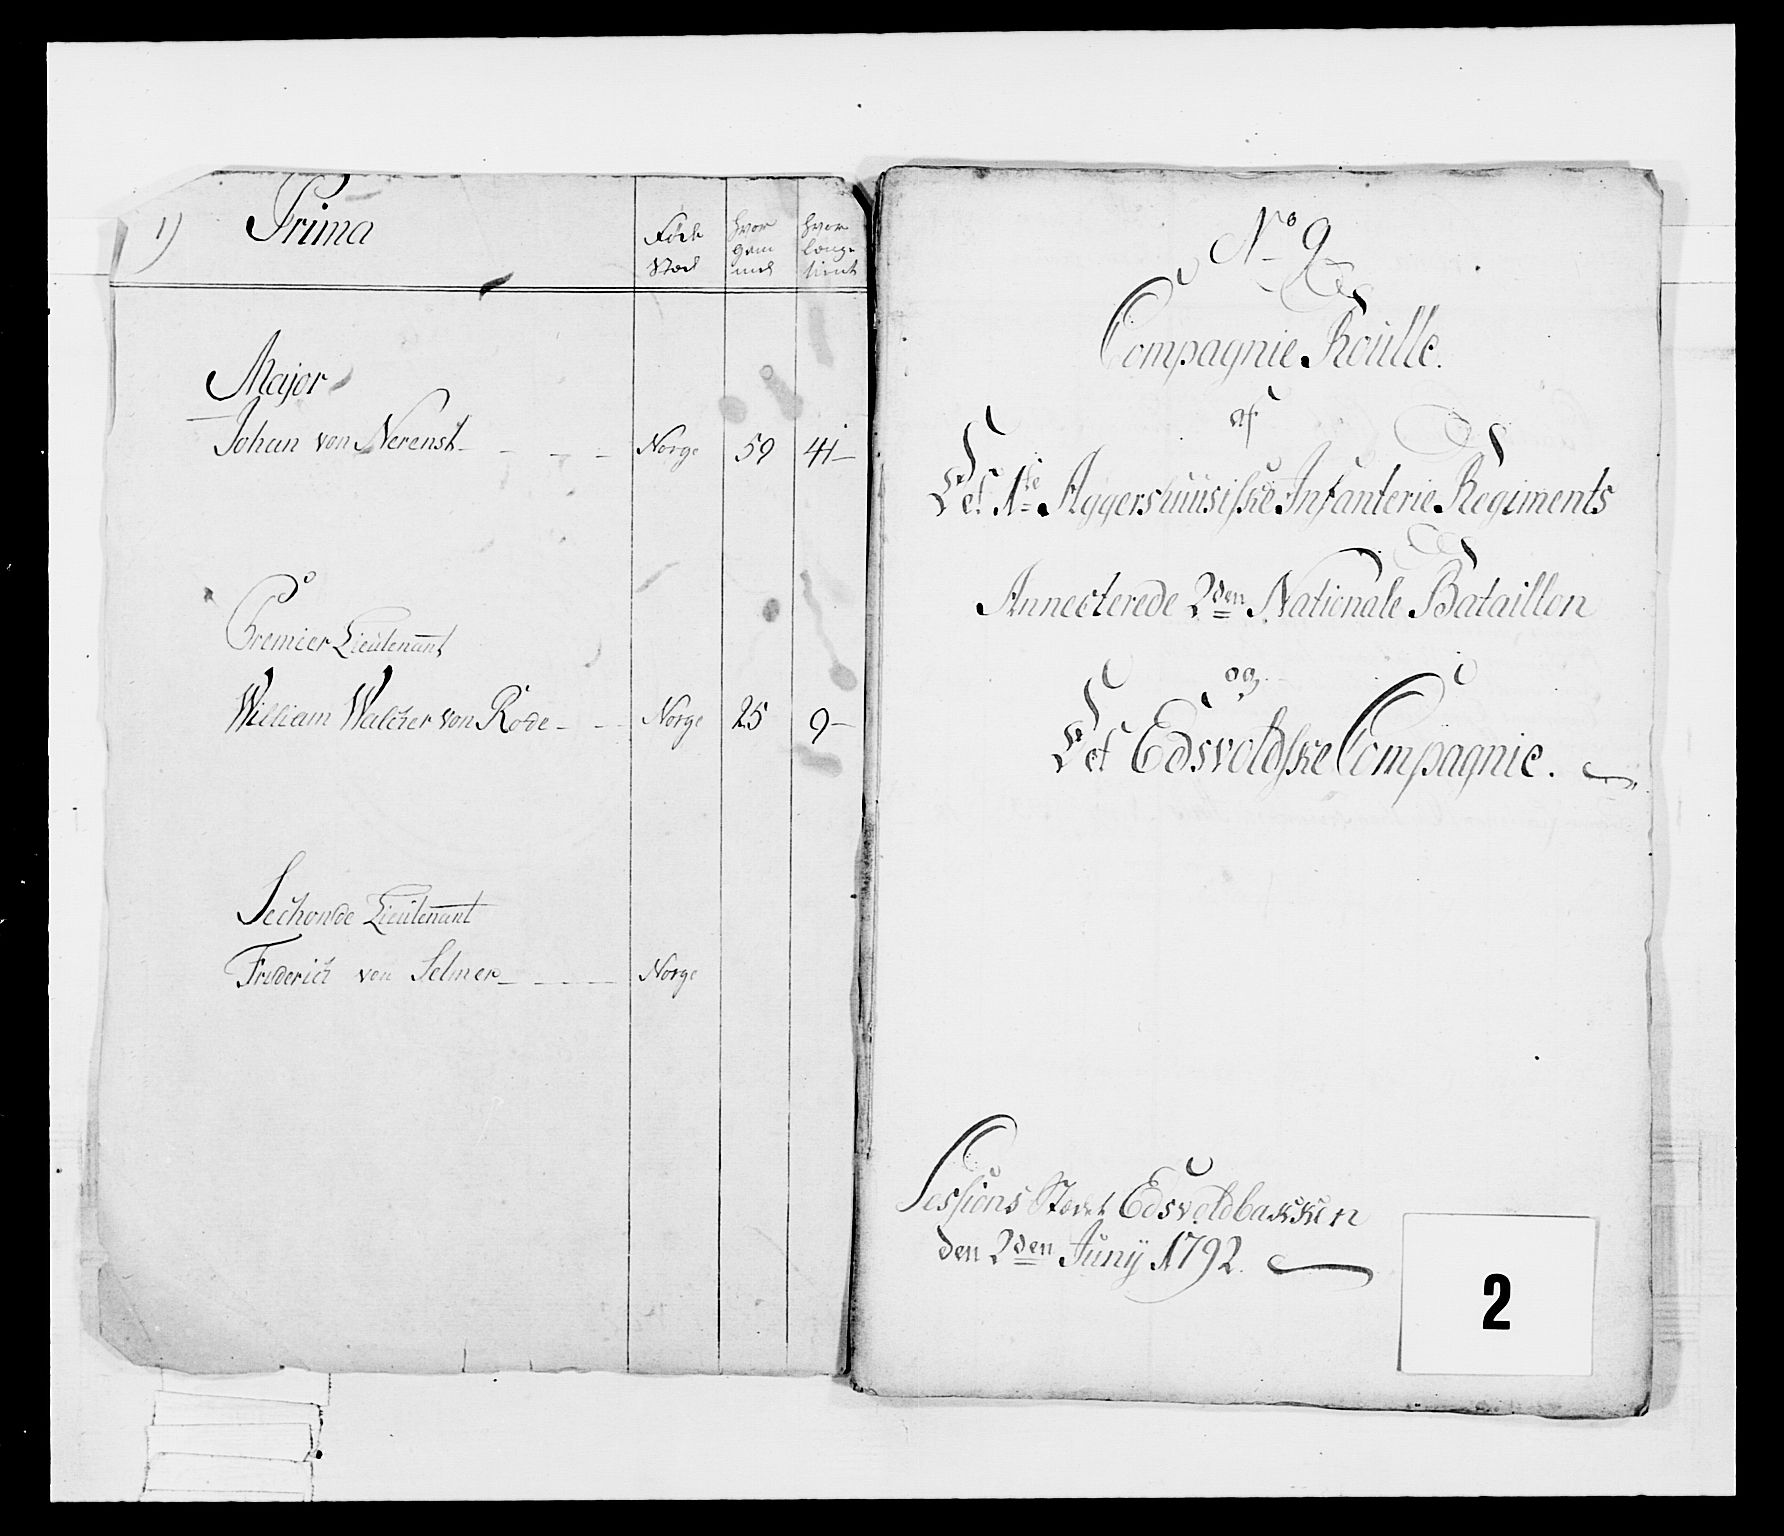 1) Prima
Föde Stæd
hvor gam mel
hvor længe tient
Major
Johan von Nerenst - - - - Norge 59 41 -
Premier Lieutenant
William Walcker von Rode - - Norge 25 9 -
Sechonde Lieutenant
Friderich von Selmer - - - Norge
No 9
Compagnie Roülle.
af
Det 1ste Aggershüüsiske Infanterie Regiments
Annecterede 2den Nationale Bataillon
og
Det Edsvoldske Compagnie.
Sessions Stædet Edsvoldbakken
den 2den Junÿ 1792.
2